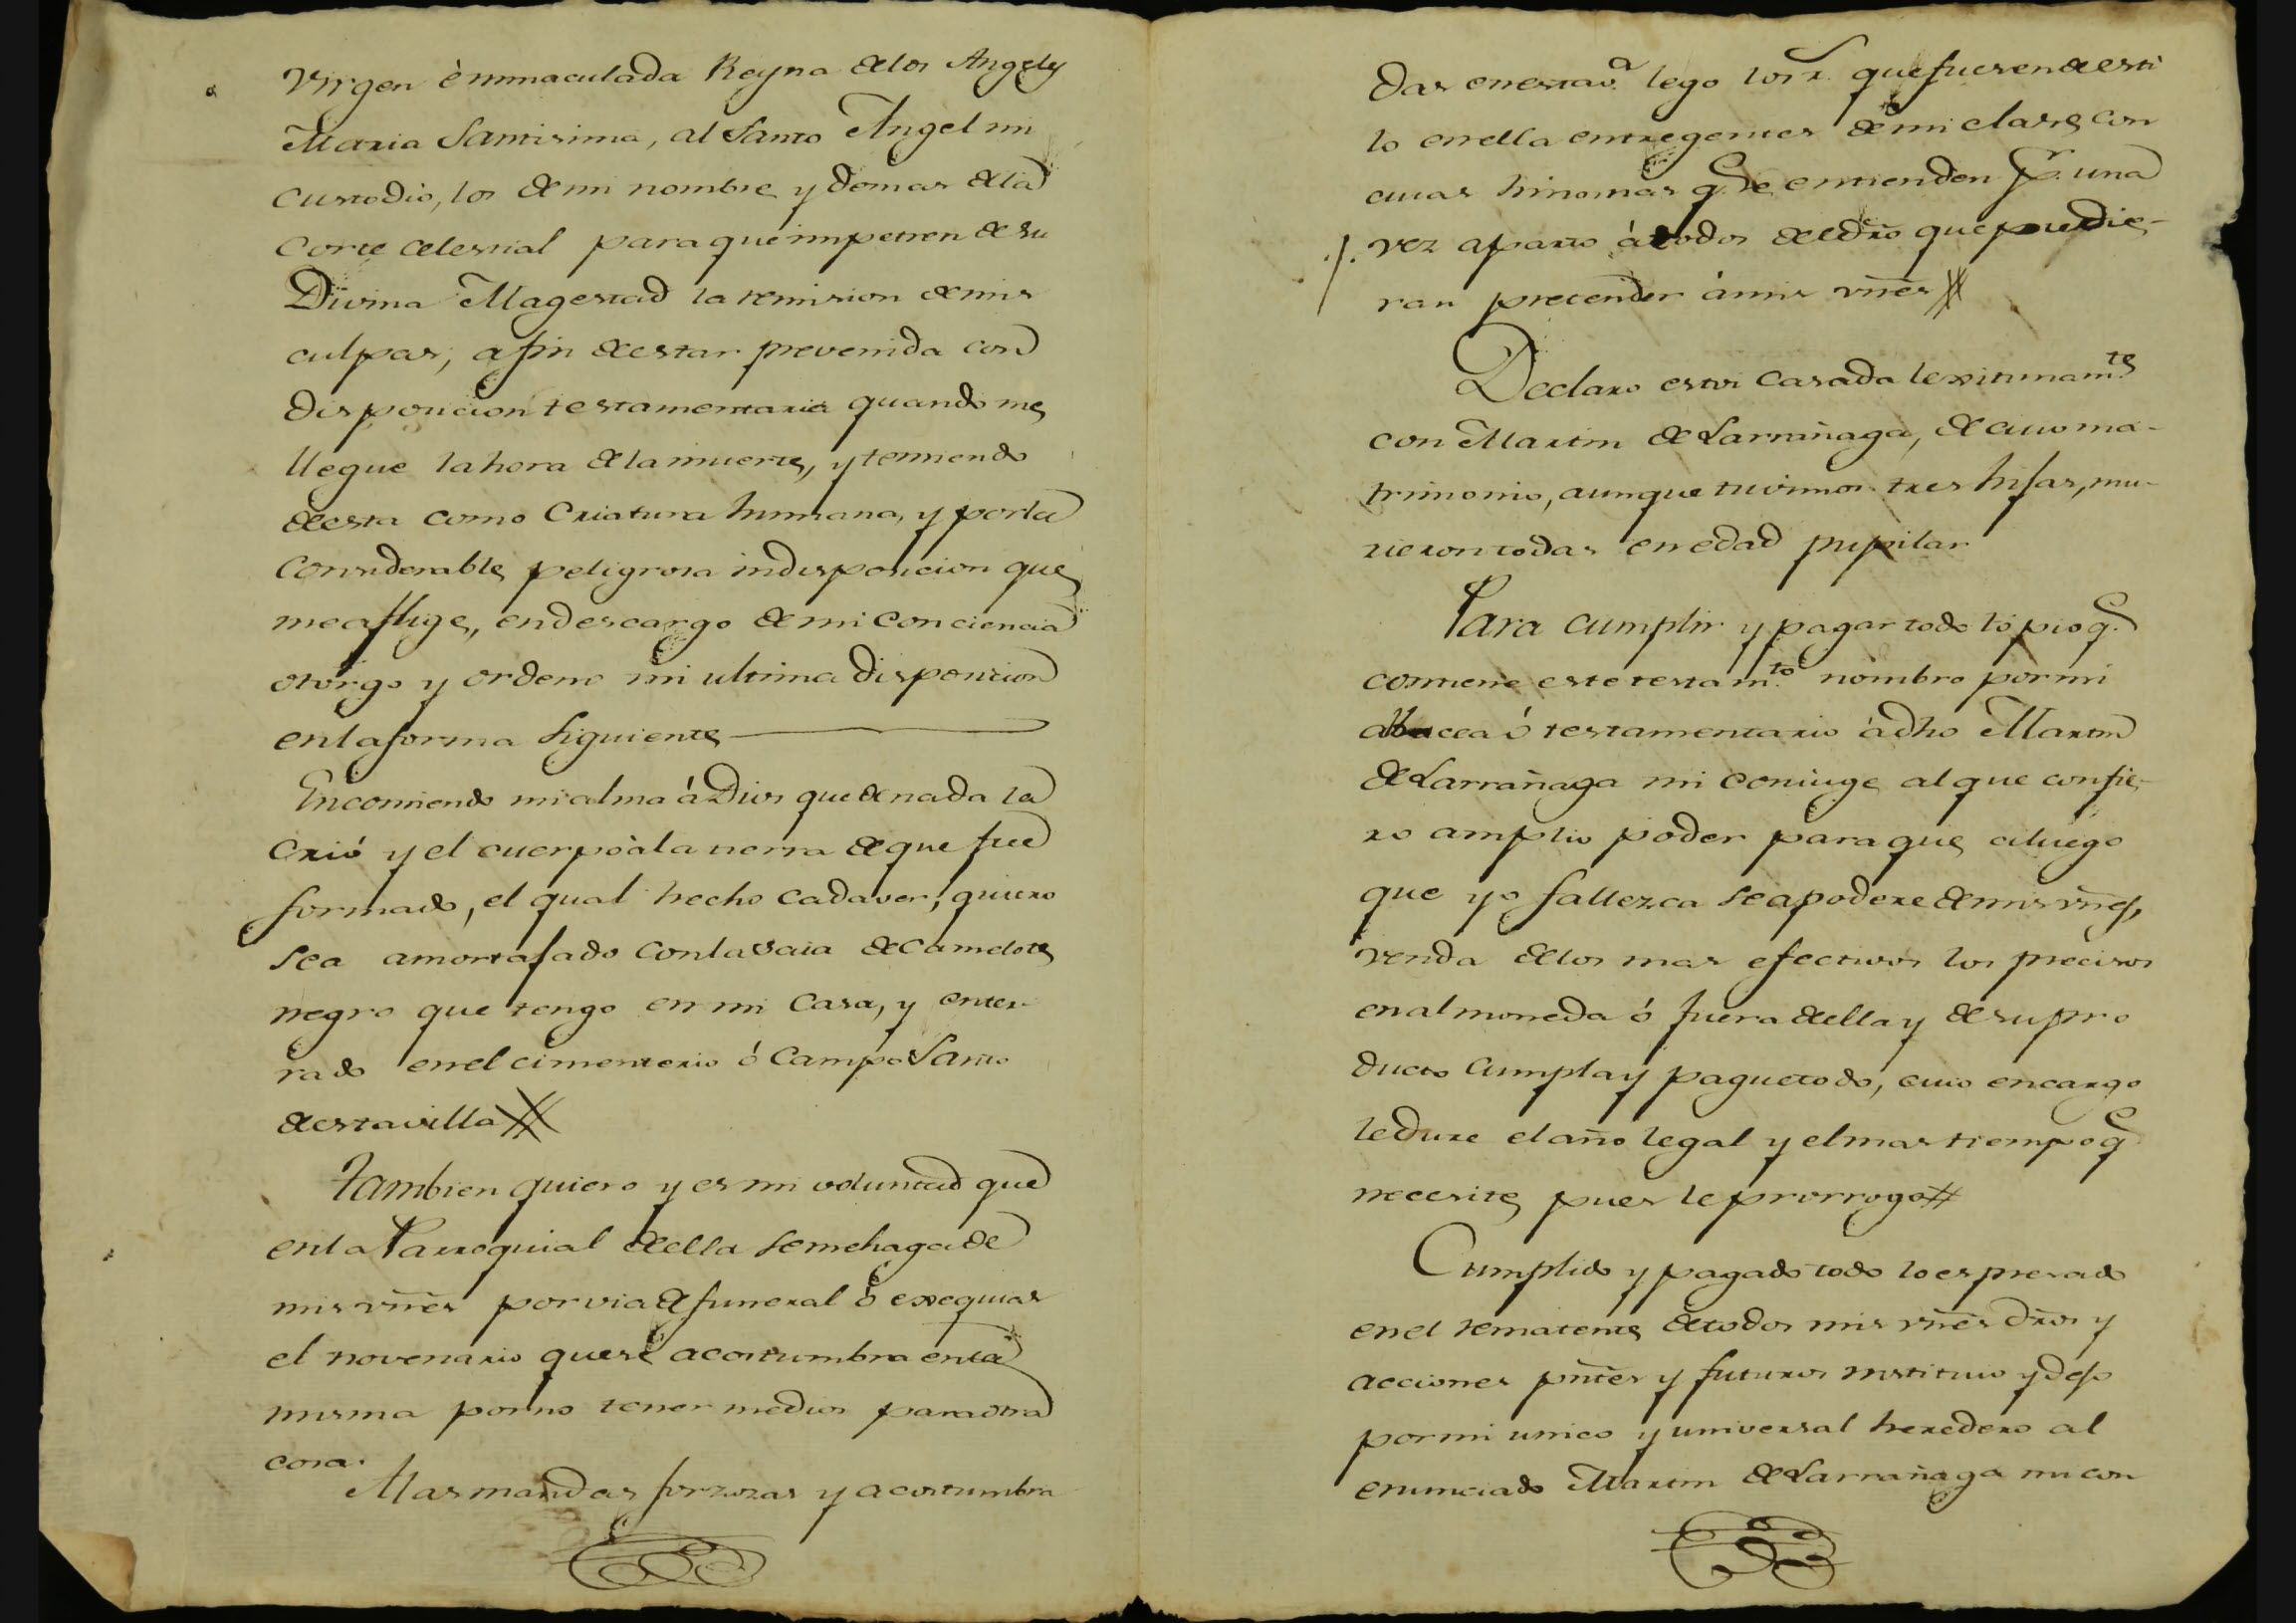 Virgen è inmaculada Reyna de los Angeles
Maria Santisima, al Santo Angel mi
custodio, los de mi nombre y demas de la
Corte celestial para que impetren de su
Divina Magestad la remision de mis
culpas, a fin de estar prevenida con
disposicion testamentaria quando me
llegue la hora de la muerte, y temiendo
de esta como Criatura humana, y por la
considerable peligrosa indisposicion que
me aflige, en descargo de mi conciencia
otorgo y ordeno mi ultima disposicion
en la forma siguiente
Encomiendo mi alma á Dios que de nada la
crió y el cuerpo à la tierra de que fue
formado, el qual hecho cadaver, quiero
sea amortajado con la saia de Camelote
negro que tengo en mi Casa, y enter-
rado en el cimenterio ó Campo Santo
de esta villa
Tambien quiero y es mi voluntad que
en la Parroquial de ella se me haga de
mis vñes por via de funeral ó exequias
el novenario que se acostumbra en la
misma por no tener medios para otra
cosa.
Mas mandas forzozas y acostumbra
das en esta v.ª lego los r.ˢ que fueren de esti
lo en ella entre gentes de mi clase, con
cuias limosnas q.e se entienden p.r una
vez aparto á todos de el dr̃o que pudie-
ran pretender á mis vñes
Declaro estoi casada lexitimam.te
con Martin de Larrañaga, de cuio ma-
trimonio, aunque tuvimos tres hijas, mu-
rieron todas en edad pupilar
Para cumplir y pagar todo lo pio q.e
contiene este testam.to nombro por mi
albacea ó testamentario à dho Martin
de Larrañaga mi coniuge al que confie-
ro amplio poder para que a luego
que yo fallezca se apodere de mis vñes,
venda de los mas efectivos los precisos
en almoneda ó fuera de ella y de su pro
ducto cumpla y pague todo, cuio encargo
le dure el año legal y el mas tiempo q.e
necesite pues le prorrogo
Cumplido y pagado todo lo espresado
en el remanente de todos mis vñes dr̃os y
acciones pñtes y futuros instituio y dejo
por mi unico y universal heredero al
enunciado Martin de Larrañaga mi con